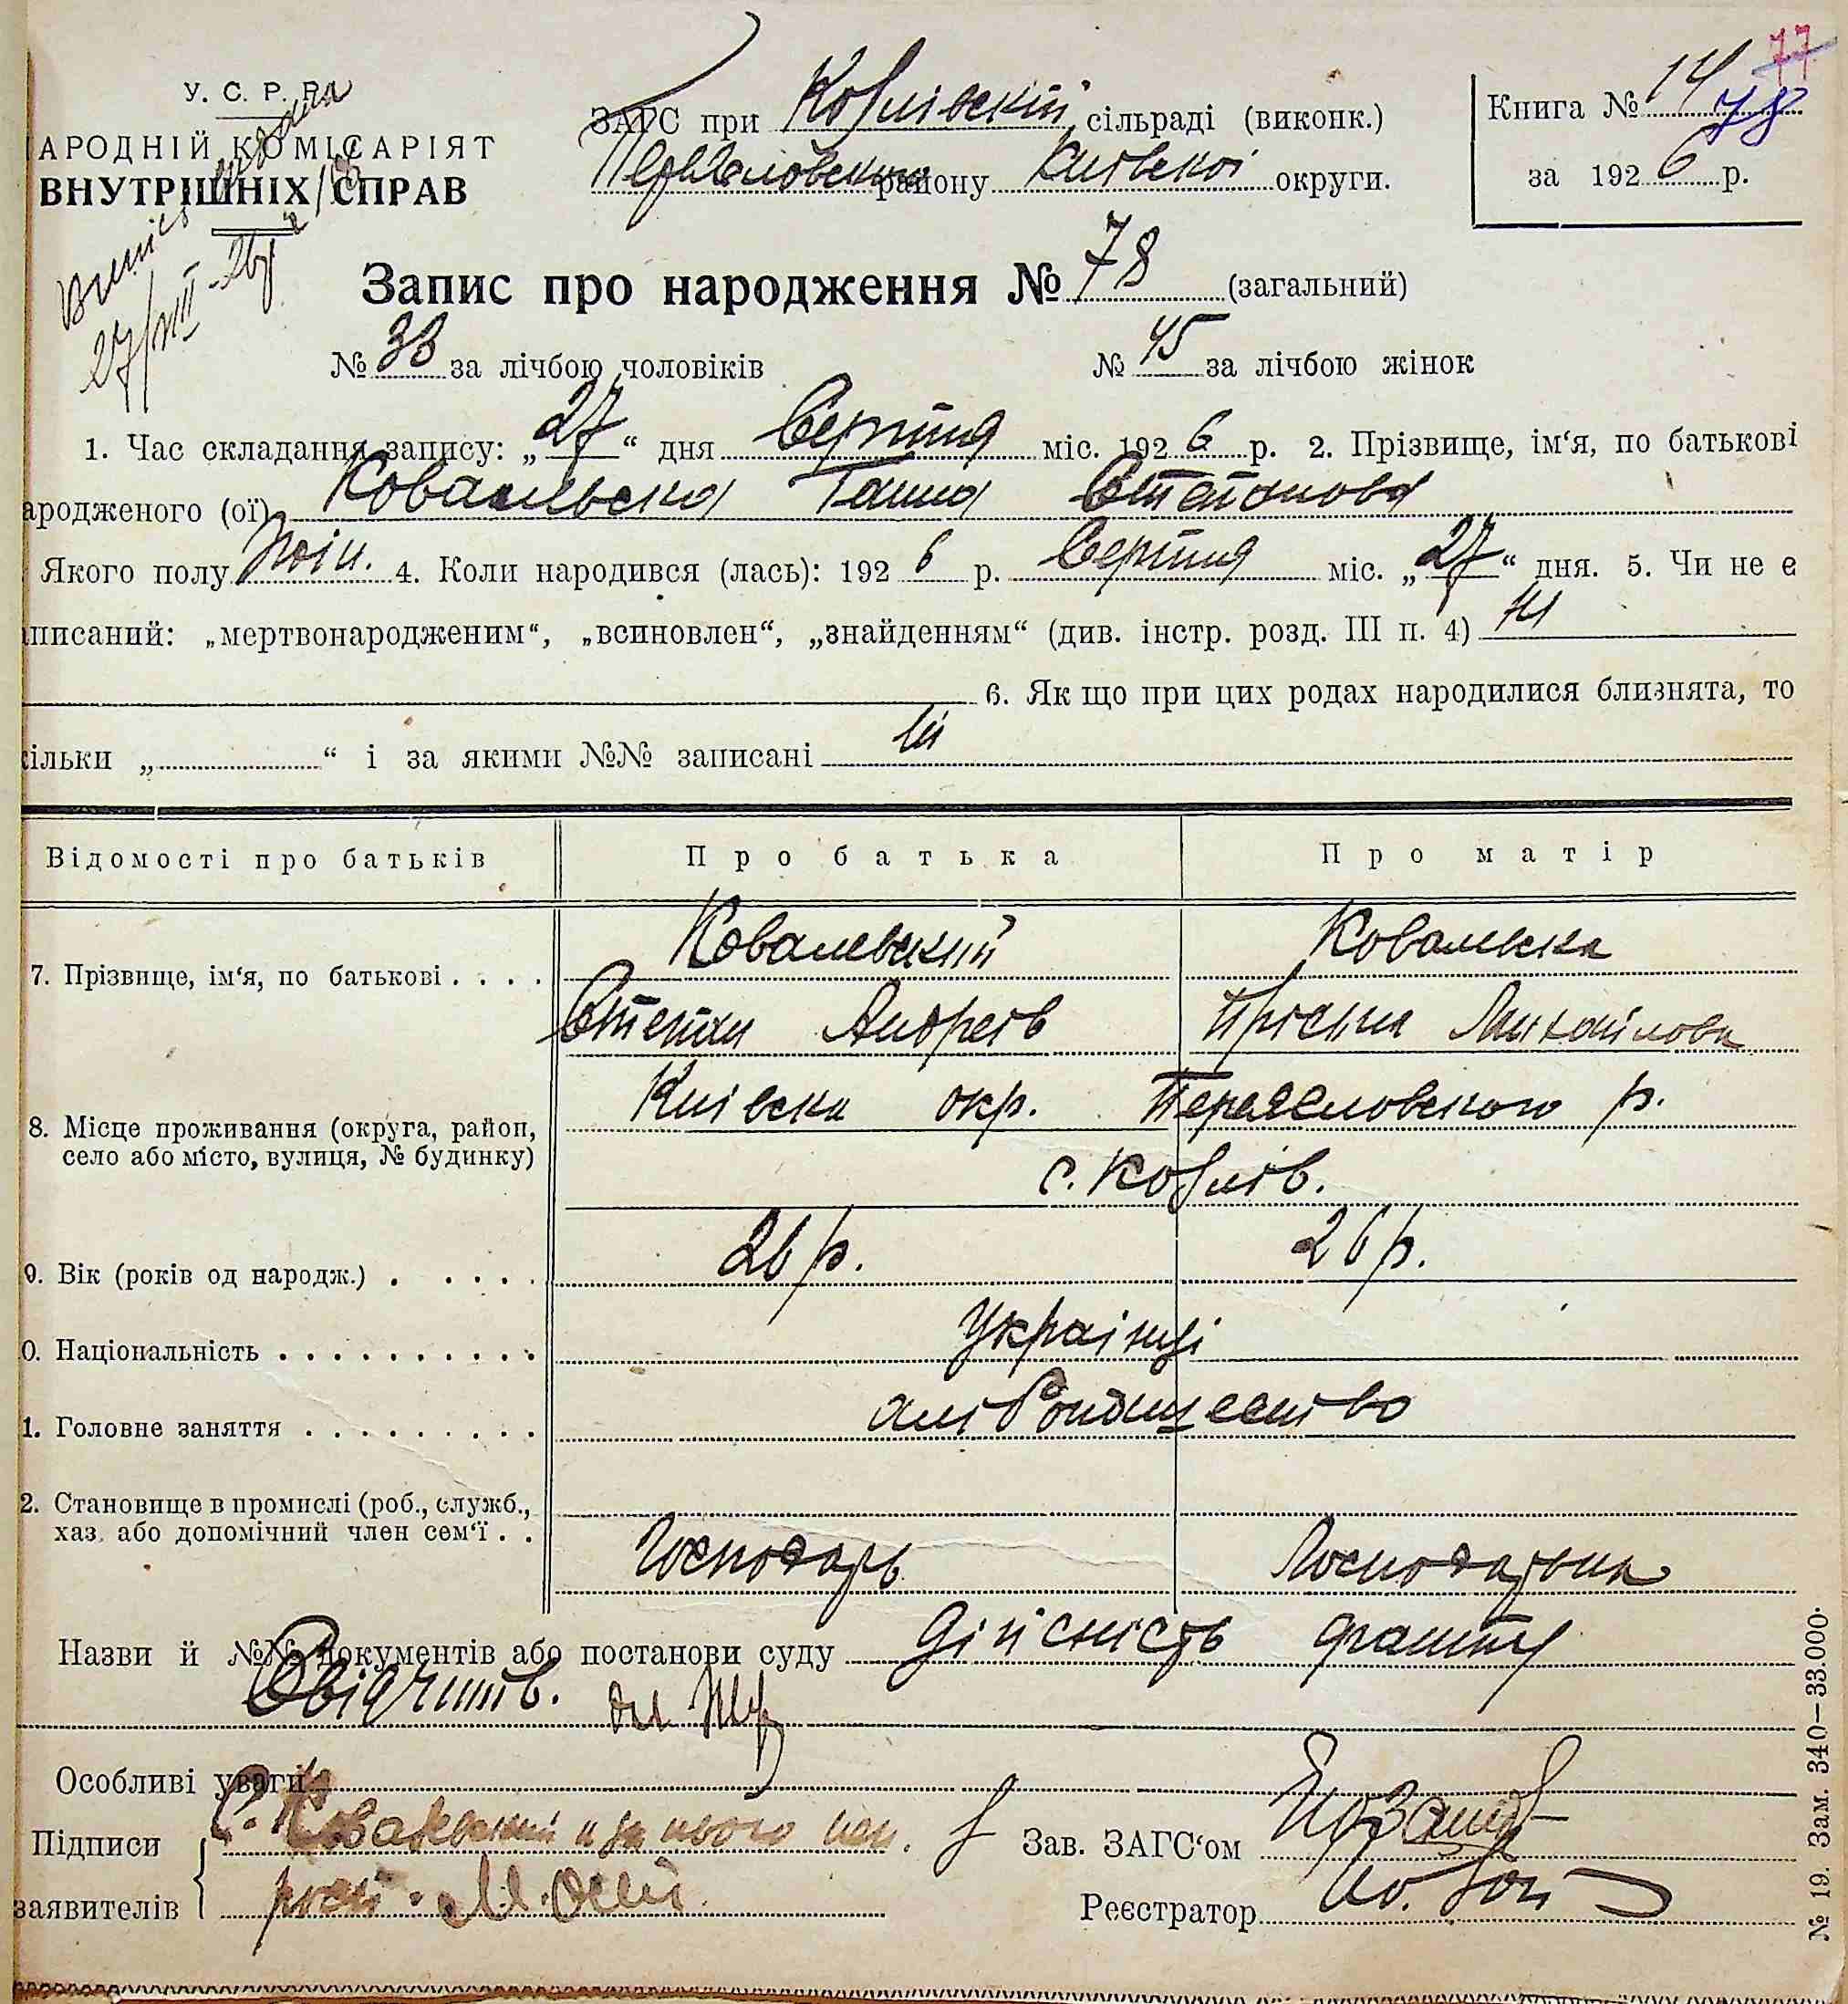 У. С. Р. Р.
АРОДНІЙ КОМІСАРІЯТ
ВНУТРІШНІХ СПРАВ
27/VIII-26р
ЗАГС при Ковлівскій сільраді (виконк.)
району Київскоі округи.
Книга № 14 78 77
за 1926 р.
Запис про народження № 78 (загальний)
№ 33 за лічбою чоловіків № 45 за лічбою жінок
1. Час складання запису: „27“ дня Серпня міс. 1926 р. 2. Прізвище, ім‘я, по батькові
ародженого (ої) Ковальска Ганна Степанова
Якого полу жін. 4. Коли народився (лась): 1926 р. Серпня міс. „27“ дня. 5. Чи не є
аписаний: „мертвонародженим“, „всиновлен“, „знайденням“ (див. інстр. розд. III п. 4) ні
6. Як що при цих родах народилися близнята, то
кільки „ “ і за якими №№ записані ні
Відомості про батьків Про батька Про матір
7. Прізвище, ім‘я, по батькові . . . . Ковалевский Ковальска
Степан Андреів Пріська Михайлова
8. Місце проживання (округа, район, село або місто, вулиця, № будинку) Киівска окр. Переясловского р.
с. Ковлів.
9. Вік (років од народж.) . . . . . 26 р. 26 р.
0. Національність . . . . . . . . . . Украінці
1. Головне заняття . . . . . . . . .
2. Становище в промислі (роб., служб., хаз. або допомічний член сем‘ї . . Господарь Господарька
Назви й №№ документів або постанови суду Дійсність факту
Свідчить.
Особливі уваги
Підписи заявителів С. Ковалевский и за нього
Зав. ЗАГС‘ом
Реєстратор
№ 19. Зам. 340—33.000.